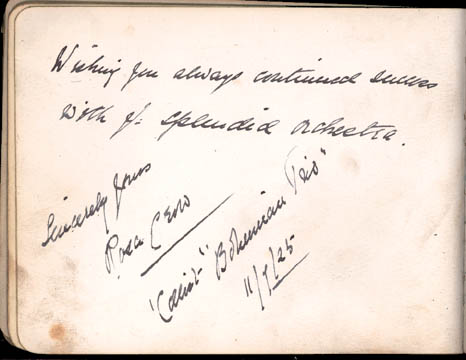 Wishing you always continued success
with yr. splendid orchestra.
Sincerely Yours
Rosa
"Bohemian Trio"
11/9/25